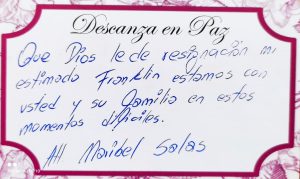 Descanza en Paz
Que Dios le de resignación mi
estimado Franklin estamos con
usted y su familia en estos
momentos dificiles.
Att Maribel Salas